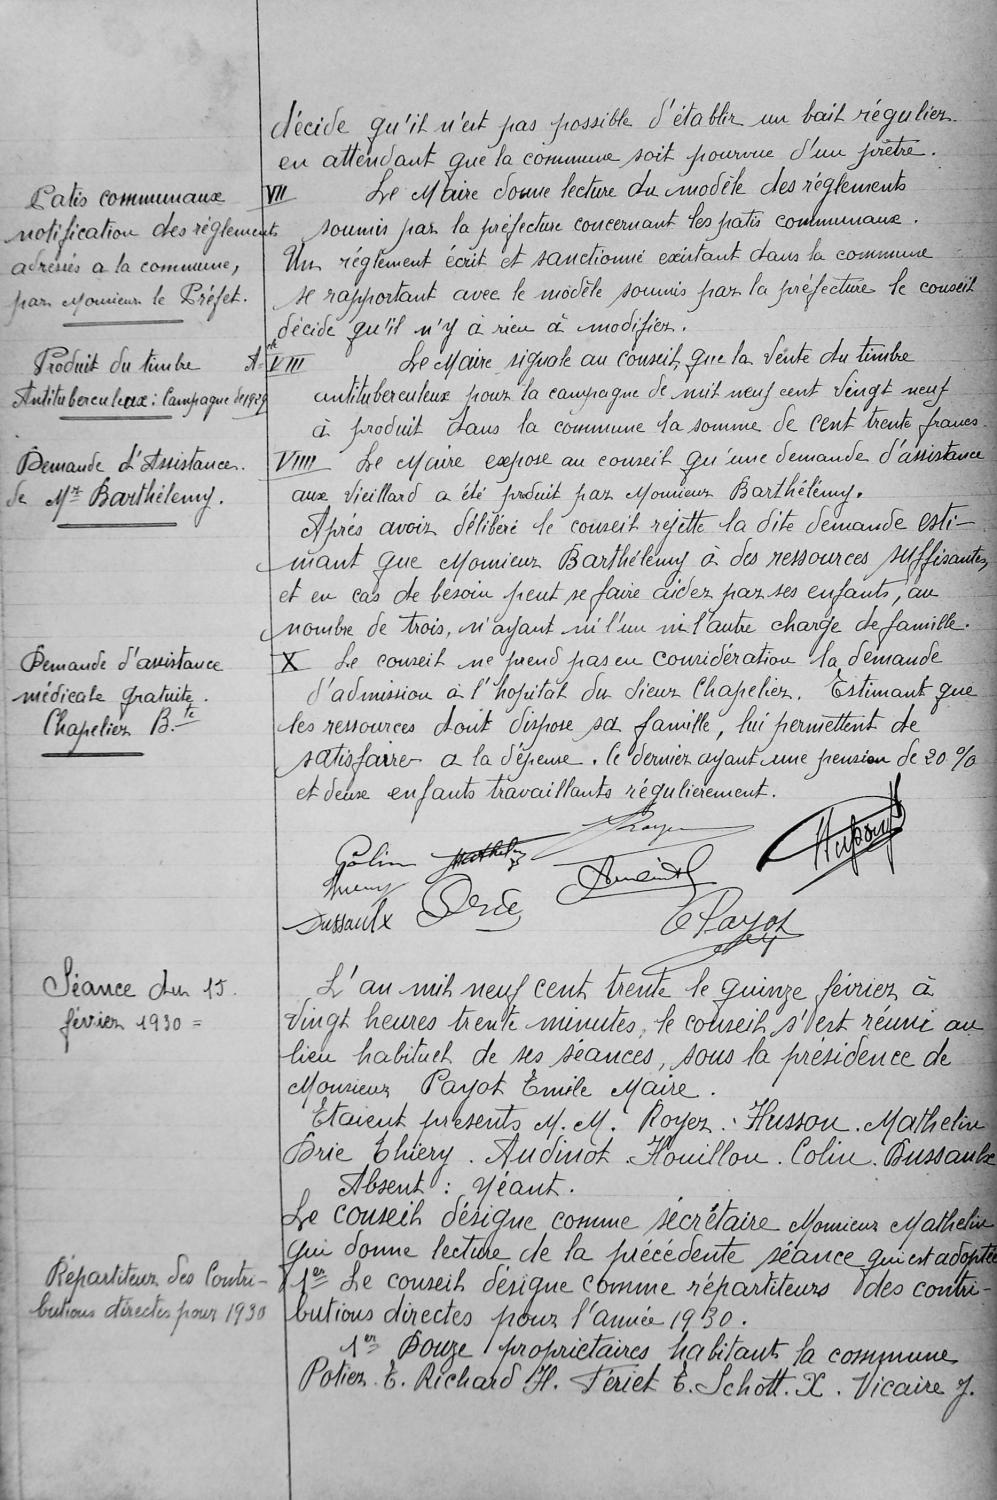 décide qu'il n'est pas possible d'établir un bail régulier.
en attendant que la commune soit pourvue d'un prêtre.
Patis communaux
notification des réglements
adressés a la commune,
par Monsieur le Préfet.
VII Le Maire donne lecture du modèle des réglements
soumis par la préfecture concernant les patis communaux.
Un réglement écrit et sanctionné existant dans la commune
se rapportant avec le modèle soumis par la préfecture le conseil
décide qu'il n'y à rien à modifier.
Produit du timbre
Antituberculeux : Campagne de 1929
VIII Le Maire signale au conseil, que la vente du timbre
antituberculeux pour la campagne de mil neuf cent vingt neuf
à produit dans la commune la somme de cent trente francs.
Demande d'Assistance.
de Mr Barthélemy.
VIIII Le Maire expose au conseil qu'une demande d'assistance
aux vieillard a été produit par Monsieur Barthélémy.
Aprés avoir délibéré le conseil rejette la dite demande esti-
mant que Monsieur Barthélémy à des ressources suffisantes,
et en cas de besoin peut se faire aider par ses enfants, au
nombre de trois, n'ayant ni l'un ni l'autre charge de famille.
Demande d'assistance
médicale gratuite.
Chapelier B.te
X Le conseil ne prend pas en considération la demande
d'admission à l'hopital du sieur Chapelier. Estimant que
les ressources dont dispose sa famille, lui permettent de
satisfaire a la dépense. Ce dernier ayant une pension de 20 %
et deux enfants travaillants régulierement.
Royer
Colin Mathelin Husson
Thiery
Dussaulx Drie Audinot
E Payot
Séance du 15
février 1930 =
L'an mil neuf cent trente le quinze février à
vingt heures trente minutes, le conseil s'est réuni au
lieu habituel de ses séances, sous la présidence de
Monsieur Payot Emile Maire.
Etaient présents M.M. Royer. Husson. Mathelin
Drie Thiery. Audinot. Houillon. Colin. Dussaulx
Absent : Néant.
Le conseil désigne comme sécrétaire Monsieur Mathelin
qui donne lecture de la précédente séance qui est adoptée
Répartiteur des Contri-
butions directes pour 1930
1er Le conseil désigne comme répartiteurs des contri-
butions directes pour l'année 1930.
1er Douze proprietaires habitant la commune
Potier. E. Richard H. Feriet E. Schott. X. Vicaire J.